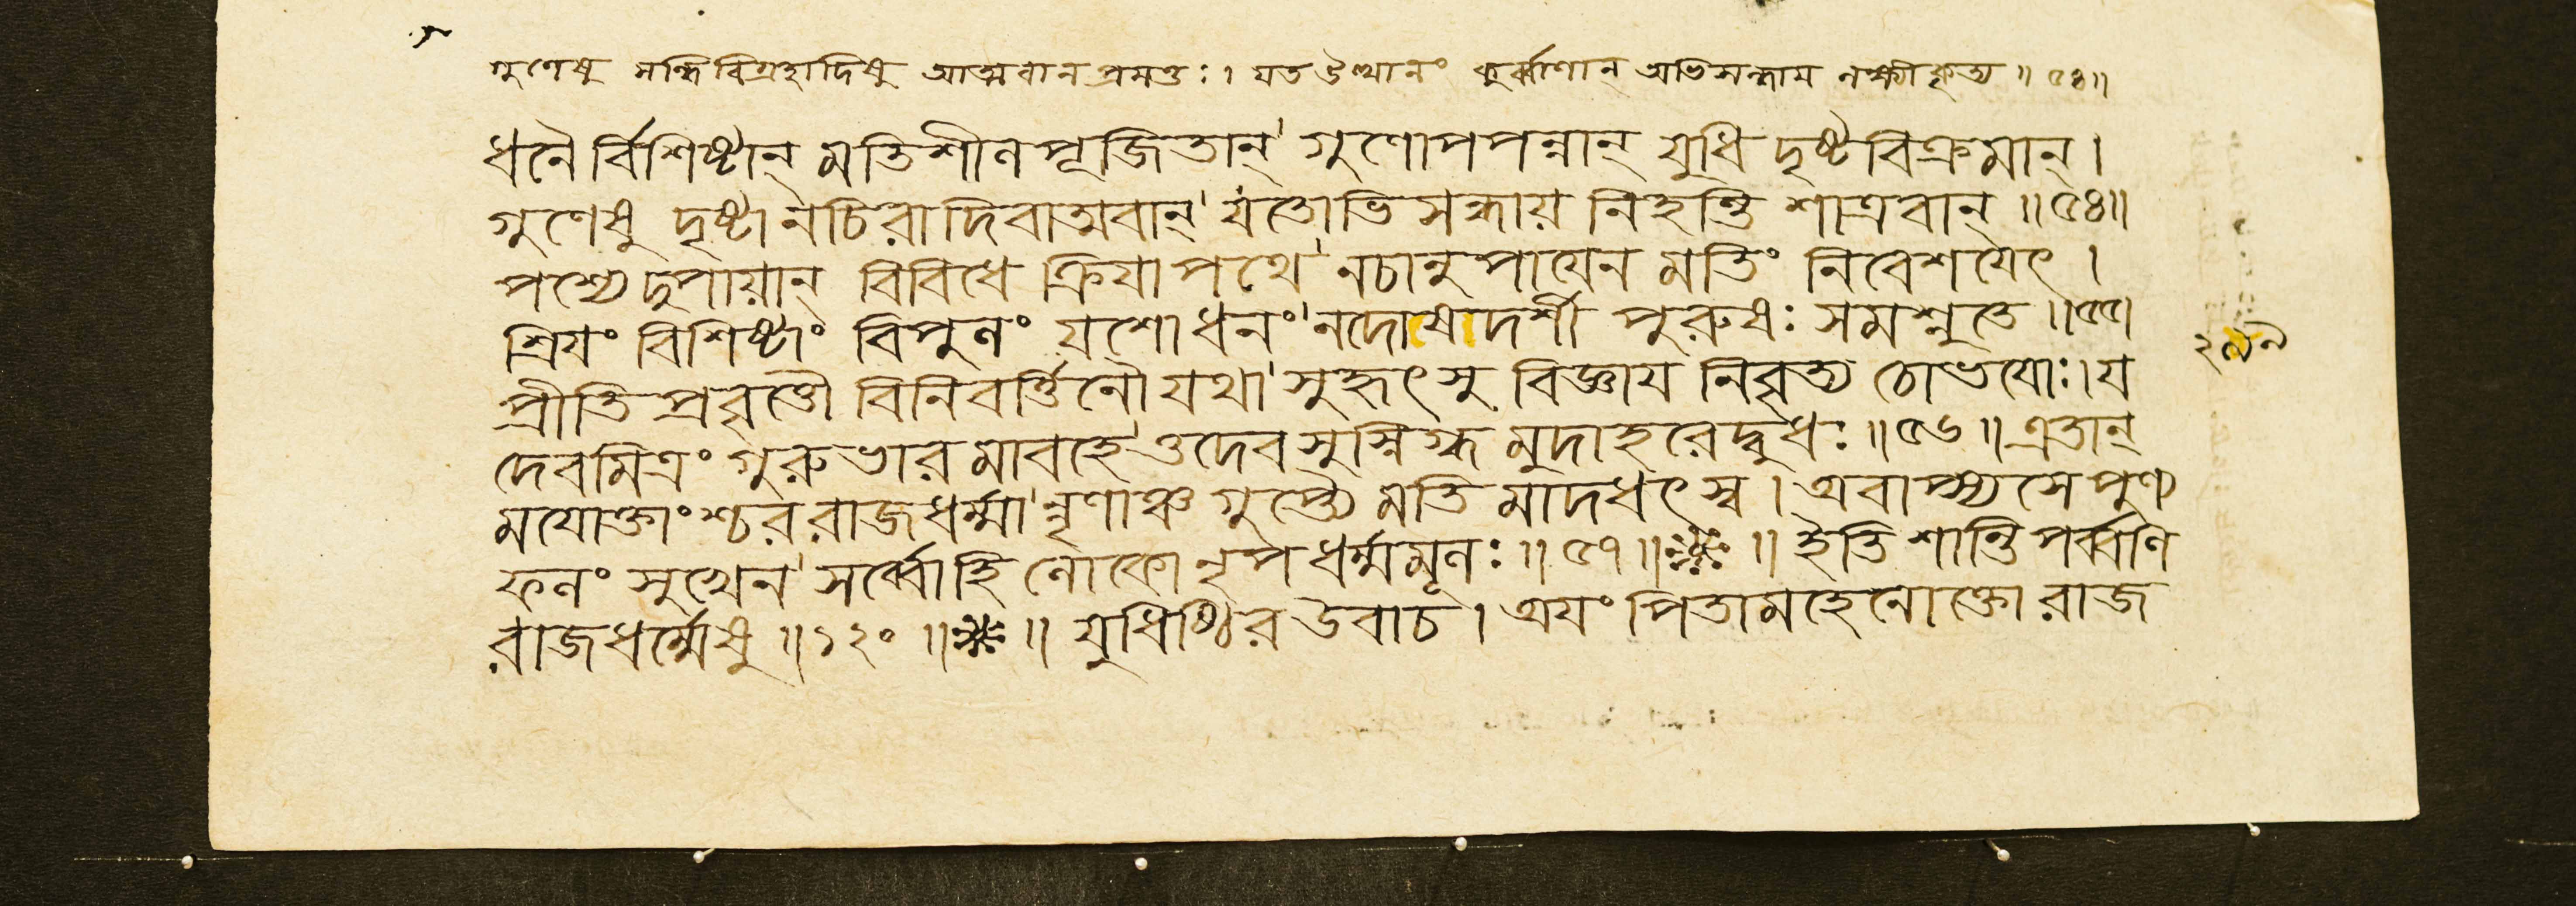 গুণেষু সন্ধিবিগ্রহাদিষু আত্মবানপ্রমত্তঃ। যত উত্থানং কুর্ব্বাণান্ অভিসন্ধায় লক্ষ্যীকৃত্য॥৫৪॥
ধনৈর্বিশিষ্টান্ মতিশীলপূজিতান্ গুণোপপন্নান্ যুধি দৃষ্টবিক্রমান্।
গুণেষু দৃষ্টানচিরাদিবাত্মবান্ যতোভিসন্ধায় নিহন্তি শাত্রবান্॥৫৪॥
পশ্যেদুপায়ান্ বিবিধে ক্রিয়াপথে নচানুপায়েন মতিং নিবেশয়েৎ।
শ্রিয়ং বিশিষ্টাং বিপুলং যশোধনং নদোষদর্শী পুরুষঃ সমশ্নুতে॥৫৫॥
প্রীতিপ্রবৃত্তৌ বিনিবর্ত্তিনৌ যথা সুহৃৎসু বিজ্ঞায় নিবৃত্য চোভয়োঃ।য
দেবমিত্রং গুরুভারমাবহেত্তদেব সুস্নিগ্ধমুদাহরেদ্বুধঃ॥৫৬॥এতান্
ময়োক্তাংশ্চর রাজধর্ম্মান্নৃণাঞ্চ গুপ্ত্যৈ মতিমাদধৎস্ব। অবাপ্স্যসে পুণ্য
ফলং সুখেন সর্ব্বোহি লোকো নৃপধর্ম্মমূলঃ॥৫৭॥ ॥ ইতি শান্তিপর্ব্বণি
রাজধর্ম্মেষু॥১২০॥ ॥ যুধিষ্ঠির উবাচ। অয়ং পিতামহেনোক্তো রাজ